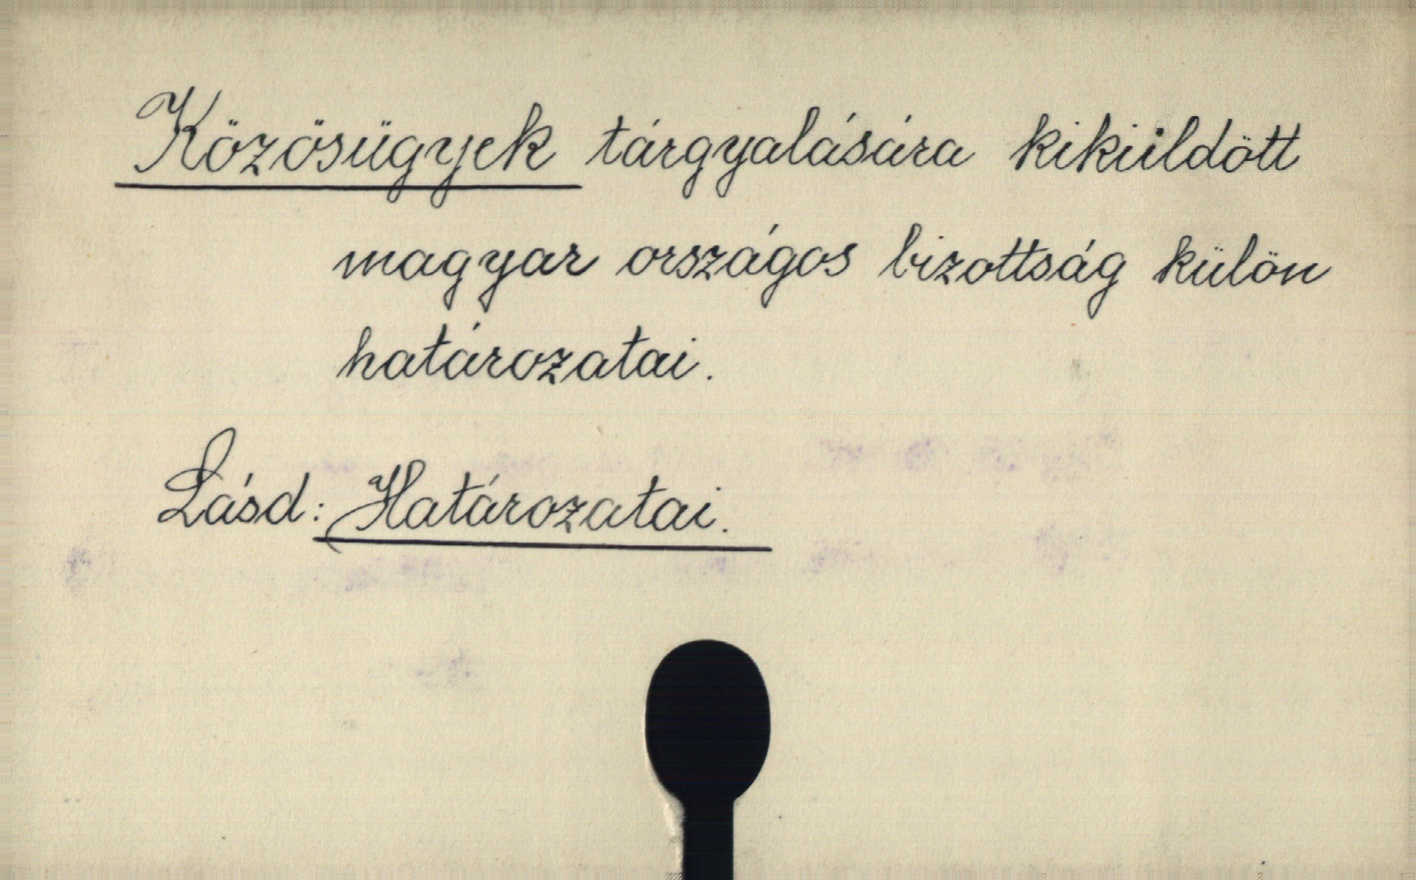 Közösügyek tárgyalására kiküldött
magyar országos bizottság külön
határozatai.
Lásd: Határozatai.